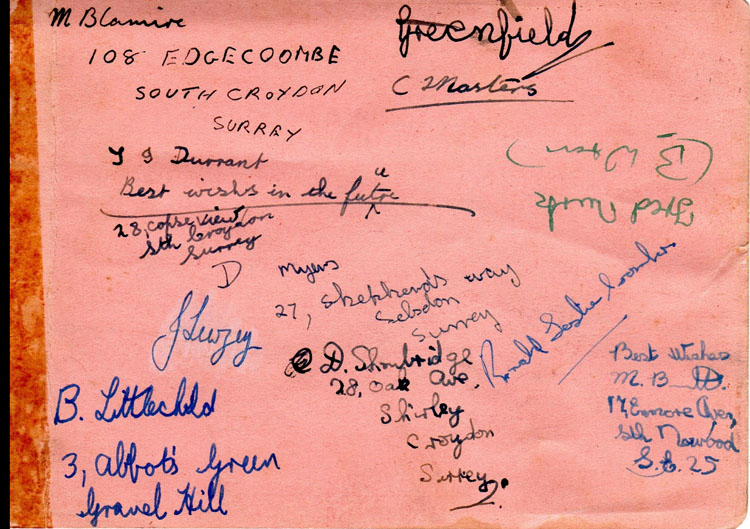 M Blamire
108 EDGECOOMBE
SOUTH CROYDON
SURREY
Greenfield
C Masters
T G Durrant
Best wishs in the futre
u
^
28, copse view
Sth Croydon
Surrey
Fred Nurk
(B.
D Myers
27, Shepherds way
Selsdon
Surrey
J Lewzey
D. Shrubridge
28, Oak Ave,
Shirley
Croydon
Surrey
Ronald Leslie Coombes
Best Wishes
M. B
17, Enmore Aven,
Sth Norwood
S.E. 25
B. Littlechild
3, Abbot's Green
Gravel Hill